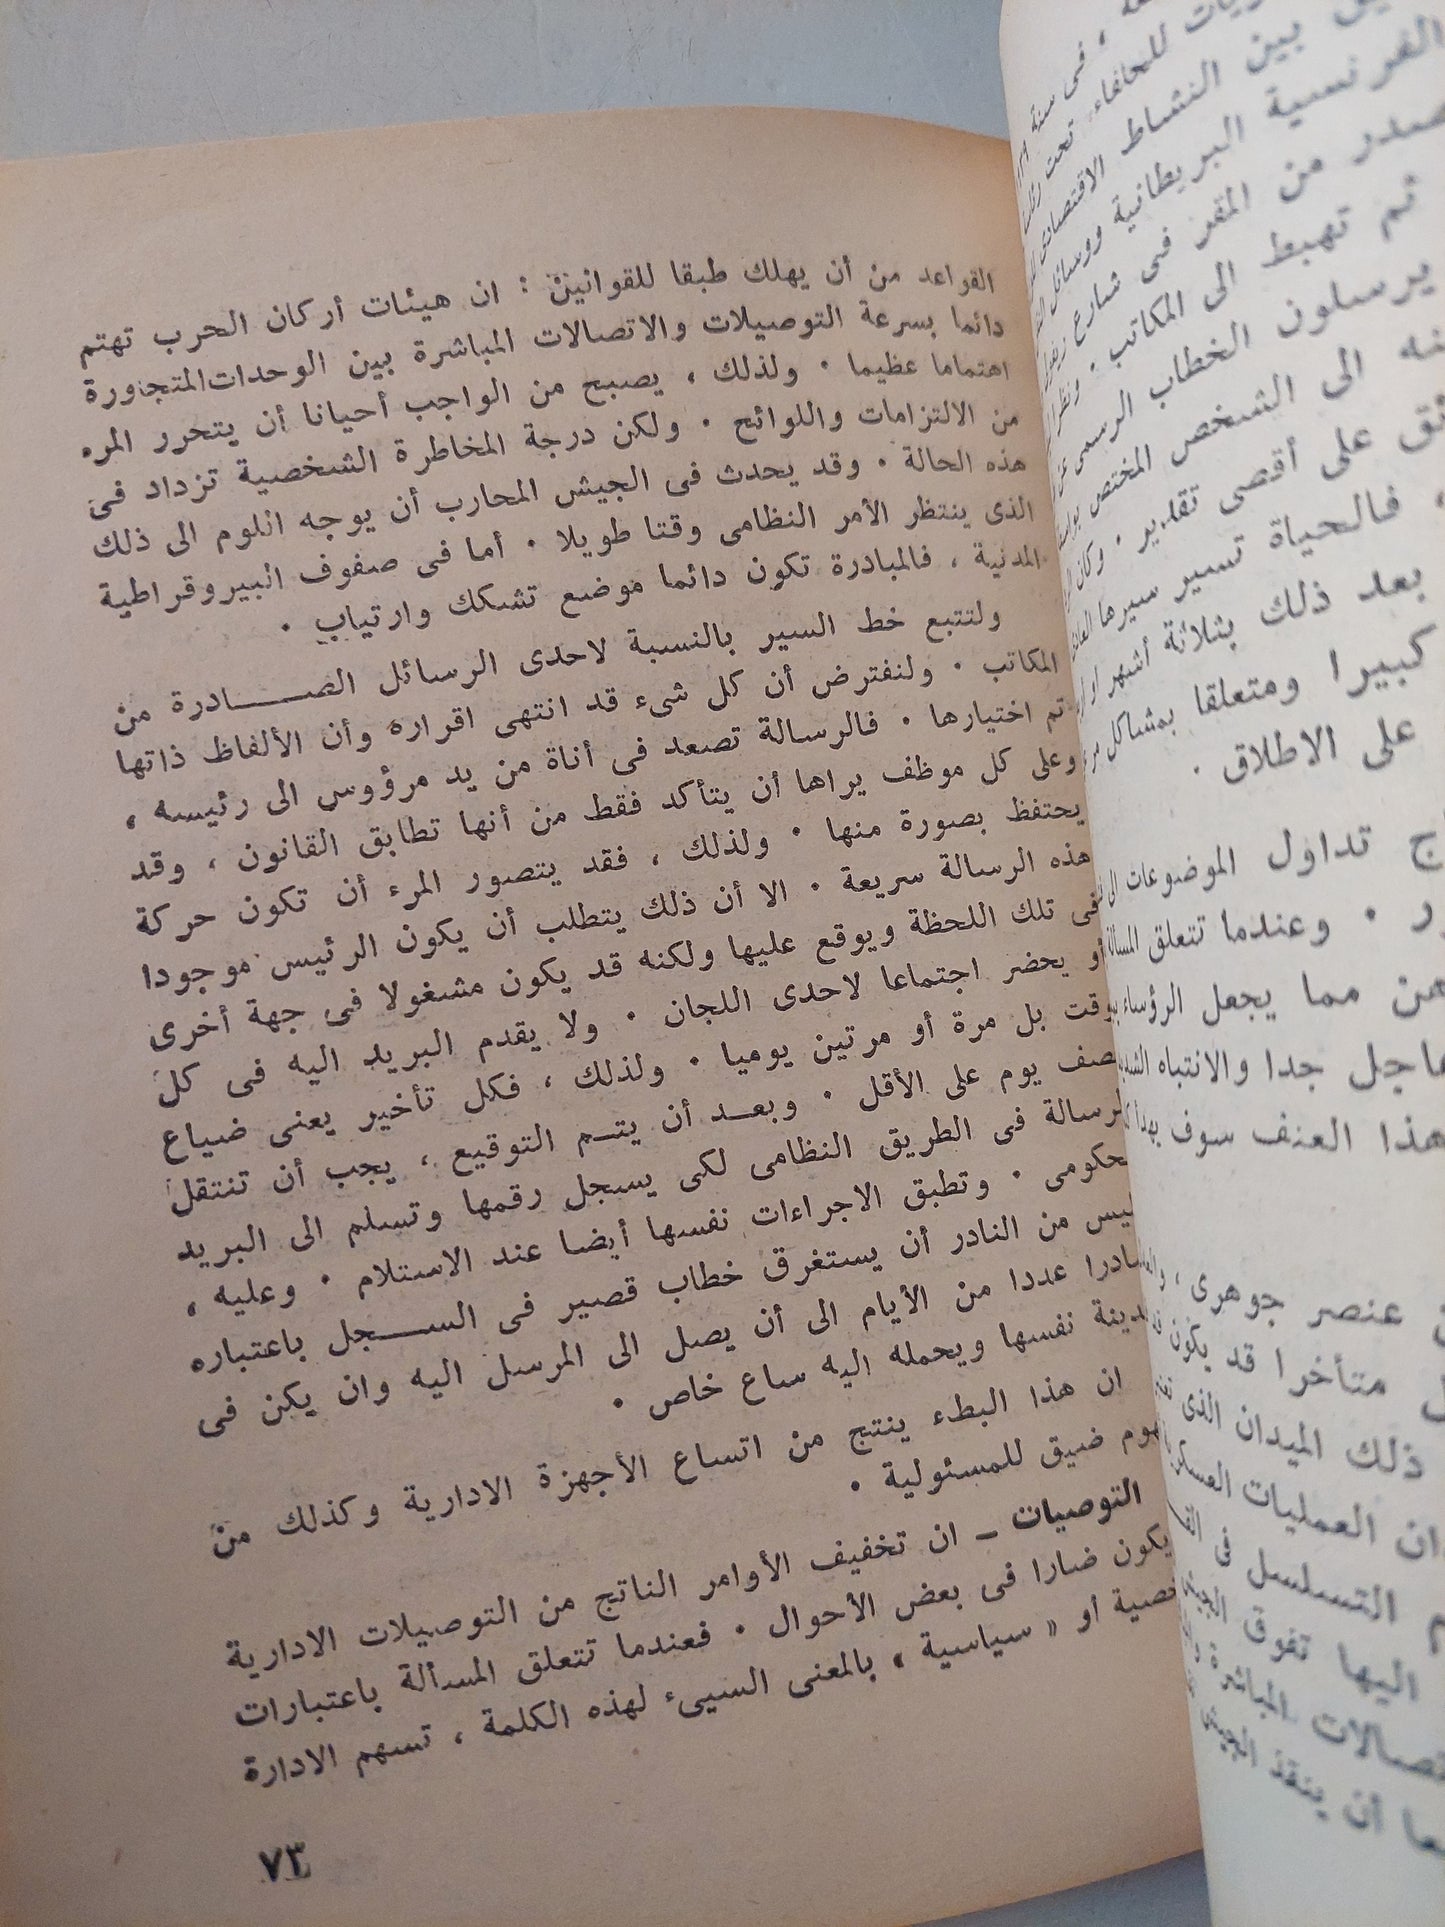 القواعد من أن يهلك طبقا للقوانين : ان هيئات أركان الحرب تهتم
دائما بسرعة التوصيلات والاتصالات المباشرة بين الوحدات المتجاورة
اهتماما عظيما . ولذلك ، يصبح من الواجب أحيانا أن يتحرر المرء
من الالتزامات واللوائح . ولكن درجة المخاطرة الشخصية تزداد فى
هذه الحالة . وقد يحدث فى الجيش المحارب أن يوجه اللوم الى ذلك
الذى ينتظر الأمر النظامى وقتا طويلا . أما فى صفوف البيروقراطية
المدنية ، فالمبادرة تكون دائما موضع تشكك وارتياب .
ولنتتبع خط السير بالنسبة لاحدى الرسائل الصادرة من
المكاتب . ولنفترض أن كل شىء قد انتهى اقراره وأن الألفاظ ذاتها
تم اختيارها . فالرسالة تصعد فى أناة من يد مرؤوس الى رئيسه ،
وعلى كل موظف يراها أن يتأكد فقط من أنها تطابق القانون ، وقد
يحتفظ بصورة منها . ولذلك ، فقد يتصور المرء أن تكون حركة
هذه الرسالة سريعة . الا أن ذلك يتطلب أن يكون الرئيس موجودا
فى تلك اللحظة ويوقع عليها ولكنه قد يكون مشغولا فى جهة أخرى
أو يحضر اجتماعا لاحدى اللجان . ولا يقدم البريد اليه فى كل
وقت بل مرة أو مرتين يوميا . ولذلك ، فكل تأخير يعنى ضياع
نصف يوم على الأقل . وبعد أن يتم التوقيع ، يجب أن تنتقل
لرسالة فى الطريق النظامى لكى يسجل رقمها وتسلم الى البريد
لحكومى . وتطبق الاجراءات نفسها أيضا عند الاستلام . وعليه ،
ليس من النادر أن يستغرق خطاب قصير فى السجل باعتباره
صادرا عددا من الأيام الى أن يصل الى المرسل اليه وان يكن فى
دينة نفسها ويحمله اليه ساع خاص .
ان هذا البطء ينتج من اتساع الأجهزة الادارية وكذلك من
هوم ضيق للمسئولية .
التوصيات – ان تخفيف الأوامر الناتج من التوصيلات الادارية
يكون ضارا فى بعض الأحوال . فعندما تتعلق المسألة باعتبارات
خصية أو « سياسية » بالمعنى السيىء لهذه الكلمة ، تسهم الادارة
٧٣
، فى سنة
للحلفاء تحت
بين النشاط الاقتصادى
الفرنسية البريطانية ووسائل
صدر من المقر فى شارع
ثم تهبط الى المكاتب . ونظرا
يرسلون الخطاب الرسمى
الى الشخص المختص
على أقصى تقدير . وكان
، فالحياة تسير سيرها
بعد ذلك بثلاثة أشهر أو
كبيرا ومتعلقا بمشاكل
على الاطلاق .
تداول الموضوعات الى
. وعندما تتعلق
مما يجعل الرؤساء
جدا والانتباه
هذا العنف سوف
عنصر جوهرى ،
متأخرا قد يكون
ذلك الميدان الذى
العمليات
التسلسل فى
اليها تفوق
المباشرة
أن ينقذ